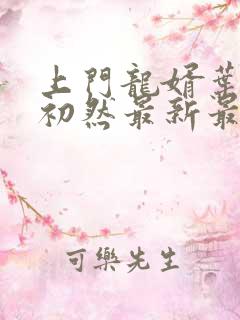 上門龍婿葉
初然最新最
可樂先生